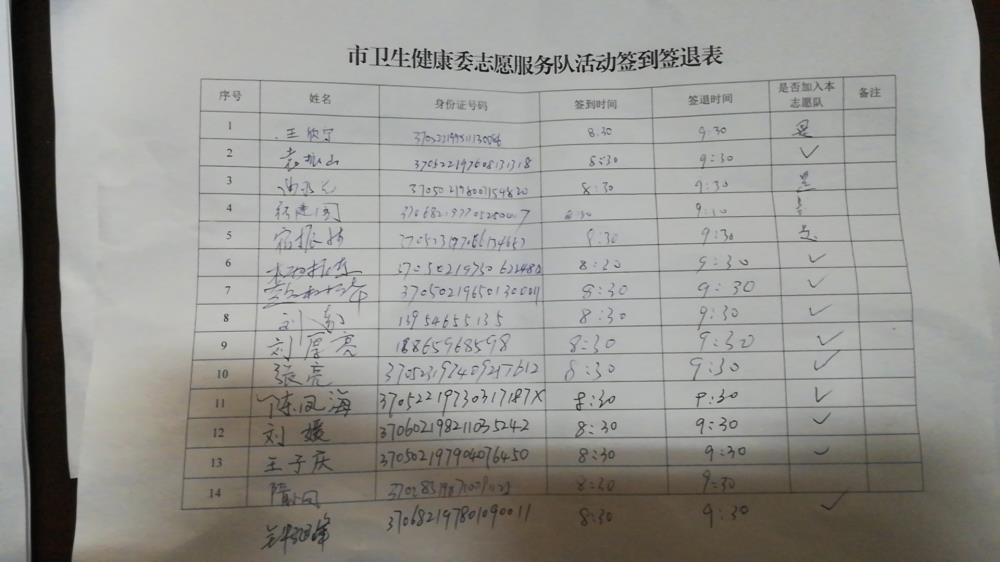 市卫生健康委志愿服务队活动签到签退表
序号 姓名 身份证号码 签到时间 签退时间 是否加入本志愿队 备注
1 王欣宁 8:30 9:30 是
2 袁振山 370622197608131318 8:30 9:30 ✓
3 370502198007154820 8:30 9:30 是
4 370682197705250007 8:30 9:10
5 8:30 9:30 是
6 8:30 9:30 ✓
7 370502196501300011 8:30 9:30 ✓
8 刘 13954655135 8:30 9:30 ✓
9 刘厚亮 18865968598 8:30 9:30 ✓
10 张亮 370523197409217612 8:30 9:30 ✓
11 陈凤海 37052219730317187X 8:30 9:30 ✓
12 刘媛 370602198211035242 8:30 9:30 ✓
13 王子庆 370502197904076450 8:30 9:30 ✓
14 隋 8:30 9:30
370682197801090011 8:30 9:30 ✓